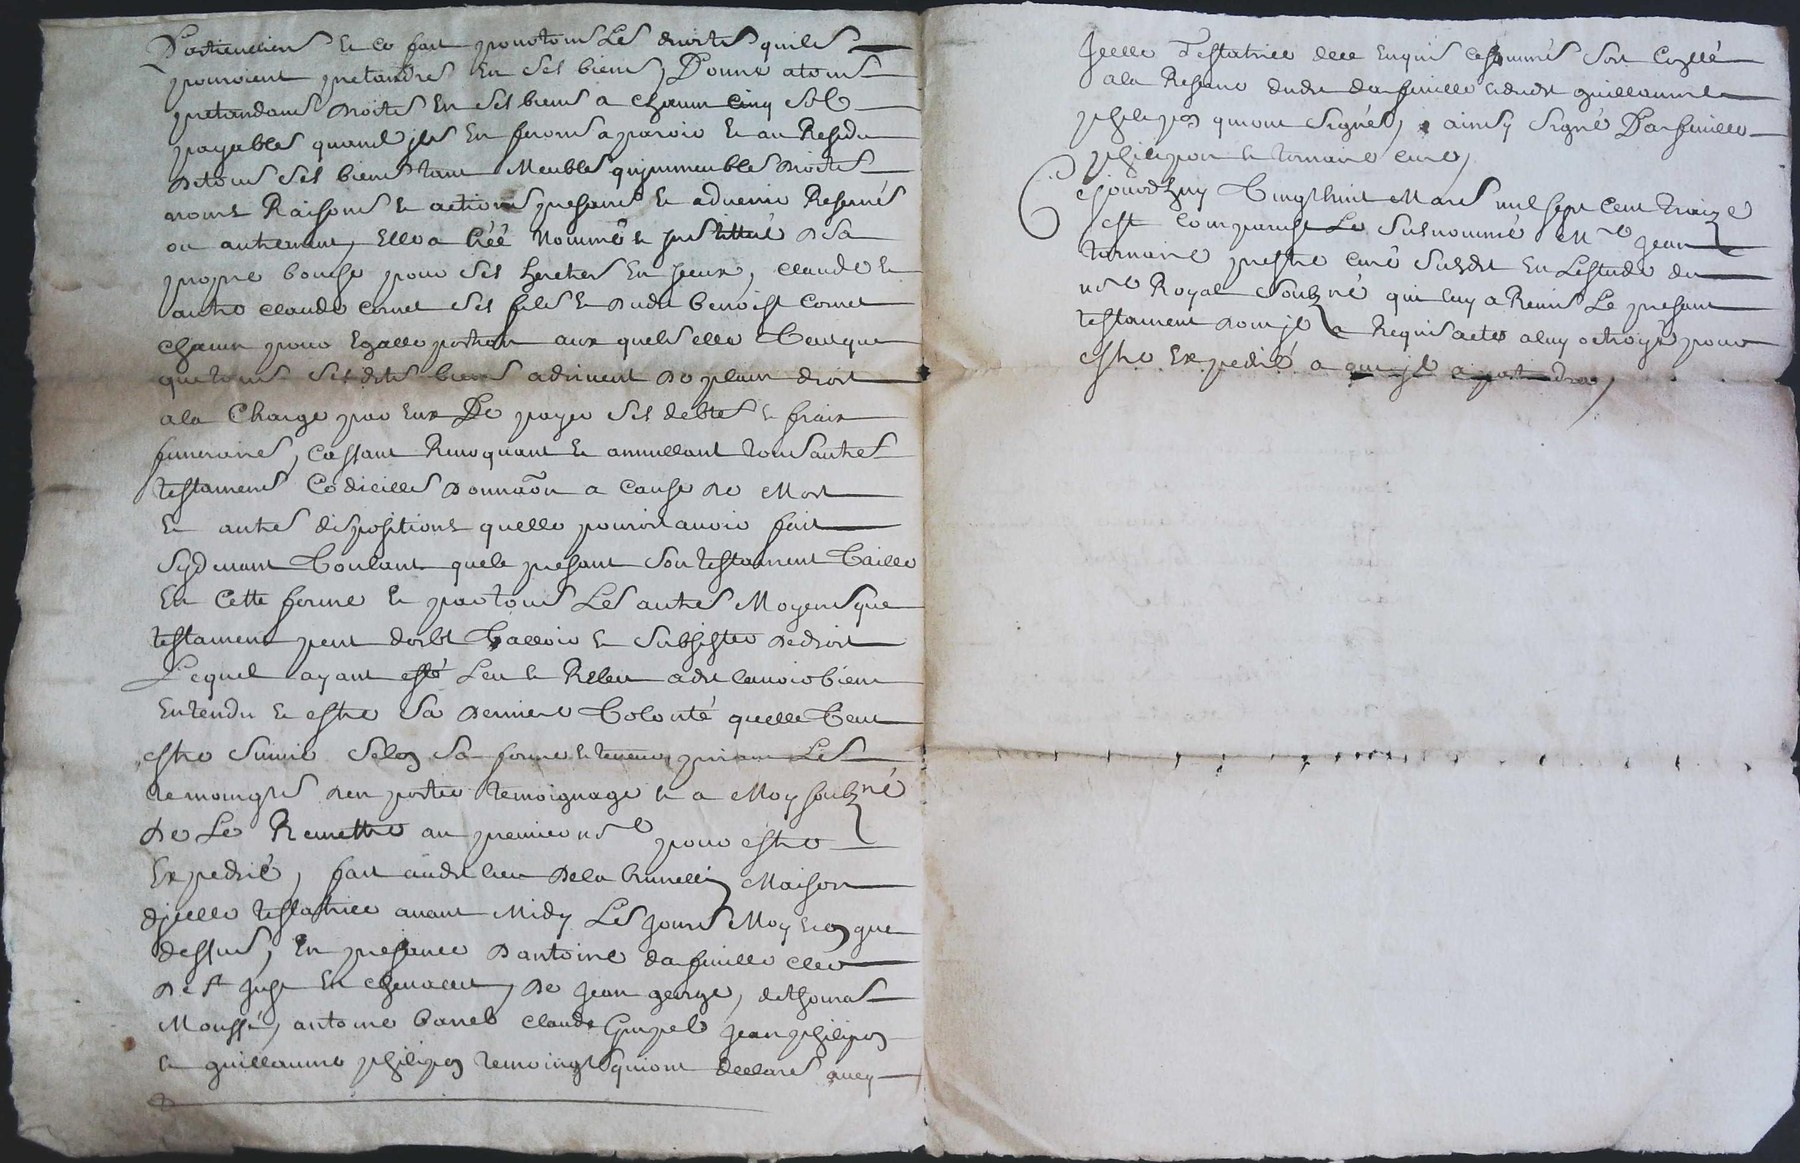 et ce fait pour tous Les droits quils
pouroient pretandre En ses biens, Donne atous
pretandans droits En ses biens a chacun Cinq sol
payables quand jls En feront aparoir Et au Residu
De tous ses biens tant Meubles qujmmeubles droits
noms Raisons et actions presans et advenir Reservés
ou autrement, Elle a Créé Nommé et jnstittué De sa
propre bouche pour ses heretiers En Jceux, claude et
autre claude Cornet ses fils et dudt benoist Cornet
chacun pour Egalle portion aux quels elle Veut que
que tous sesdits biens advinent De plain droit
a la Charge par Eux De payer ses debtes et fraix
funeraires, Cassant Revoquant et annullant tous autres
testamens Codicilles Donnaõn a Cause de Mort
et autres dispositions quelle pouroit avoir fait
sydevant Voulant que le presant son testament Vaille
En Cette forme et par tous Les autres Moyens que
testament peut doibt Valloir et subsister De droit
Lequel ayant esté Leu et Releu a dit lavoir bien
Entendu et estre sa derniere Volonté quelle Veut
estre suivie selon sa forme et teneur priant Les
temoingts den porter temoignage et a Moy soubzné
De Le Remettre au premier nre pour estre
Expedié, fait audt lieu De la Maison
djcelle testatrice avant Midy Les jours Moys et an que
dessus, En presance dantoine dafeuille clerc
De st Just En chevalet, de Jean george, de thomas
Moussé, antoine Claude Jean philipon
et guillaume philipon temoingts quiont declarés avec
Jcelle Testatrice de ce Enquis et sommés sont Cyllé
a la Reserve dudt dafeuille et dudt guillaume
philipon quiont signés, ainsy signé Dafeuille
philipon et tornaire curé,
Cejourdhuy Vingthuit Mars mil sept Cent traize
est Comparust Le susnommé Mre Jean
tornaire prestre curé susdt En Lestude du
nre Royal soubzné qui luy a Remis Le presant
testament dont jl a Requis acte a luy octroyé pour
estre Expedié a qui jl apartiendra,